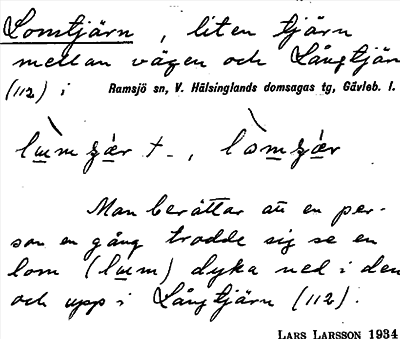 Lomtjärn, liten tjärn
mellan vägen och Långtjärn
(112) i Ramsjö sn, V. Hälsinglands domsagas tg, Gävleb. l.
Man berättar att en per-
son en gång trodde sig se en
lom (lum) dyka ned i den
och upp i Långtjärn (112).
LARS LARSSON 1934